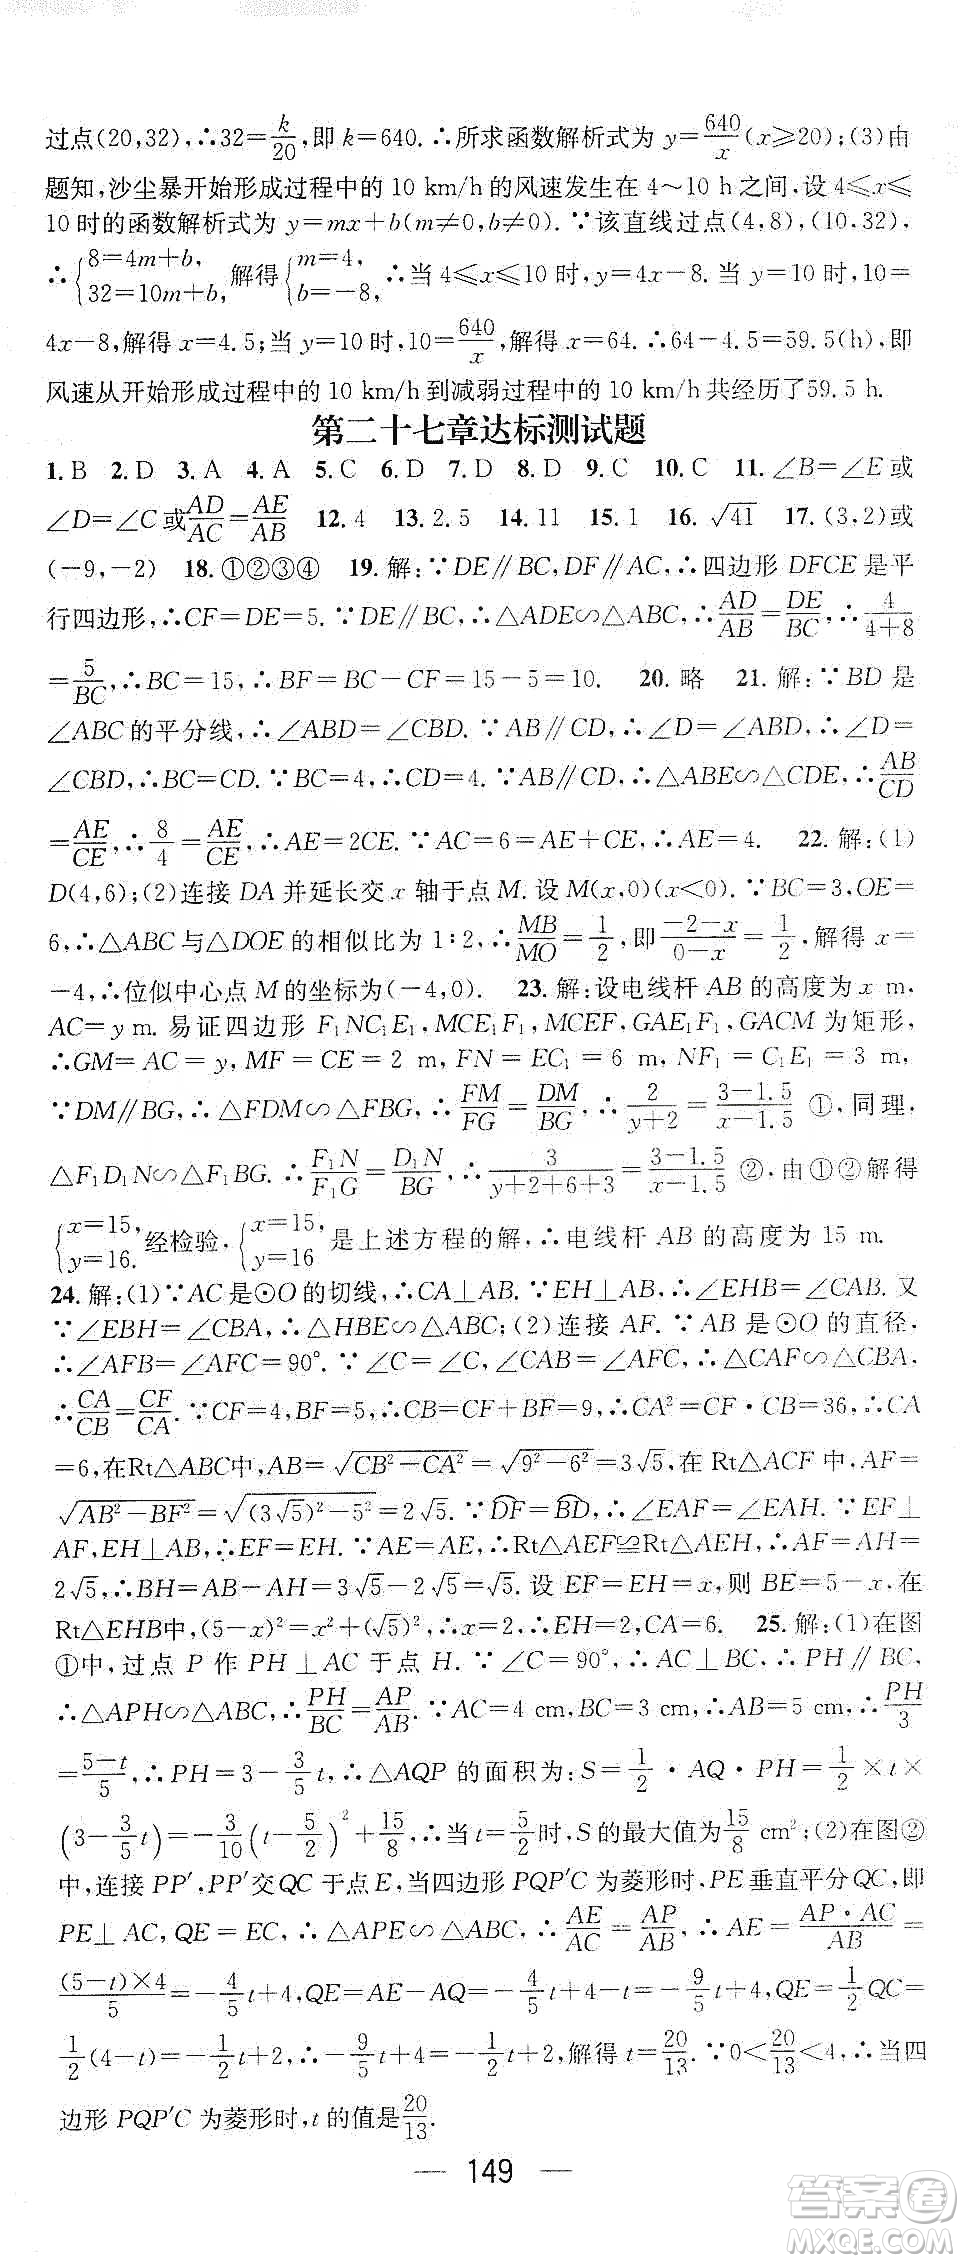 过点(20,32),∴32=k/20,即 k=640. ∴所求函数解析式为 y=640/x(x⩾20);(3)由
题知,沙尘暴开始形成过程中的 10 km/h 的风速发生在 4～10 h 之间,设 4⩽x⩽
10 时的函数解析式为 y=mx+b(m≠0,b≠0). ∵该直线过点(4,8),(10,32),
∴{8=4m+b, 32=10m+b, 解得{m=4, b=-8, ∴当 4⩽x⩽10 时,y=4x-8. 当 y=10 时,10=
4x-8,解得 x=4.5;当 y=10 时,10=640/x,解得 x=64. ∴64-4.5=59.5(h),即
风速从开始形成过程中的 10 km/h 到减弱过程中的 10 km/h 共经历了 59.5 h.
第二十七章达标测试题
1. B 2. D 3. A 4. A 5. C 6. D 7. D 8. D 9. C 10. C 11. ∠B=∠E 或
∠D=∠C 或 AD/AC=AE/AB 12. 4 13. 2.5 14. 11 15. 1 16. √41 17. (3,2)或
(-9,-2) 18. ①②③④ 19. 解:∵DE∥BC,DF∥AC,∴四边形 DFCE 是平
行四边形,∴CF=DE=5. ∵DE∥BC,∴△ADE∽△ABC,∴AD/AB=DE/BC,∴4/(4+8)
=5/BC,∴BC=15,∴BF=BC-CF=15-5=10. 20. 略 21. 解:∵BD 是
∠ABC 的平分线,∴∠ABD=∠CBD. ∵AB∥CD,∴∠D=∠ABD,∴∠D=
∠CBD,∴BC=CD. ∵BC=4,∴CD=4. ∵AB∥CD,∴△ABE∽△CDE,∴AB/CD
=AE/CE,∴8/4=AE/CE,∴AE=2CE. ∵AC=6=AE+CE,∴AE=4. 22. 解:(1)
D(4,6);(2)连接 DA 并延长交 x 轴于点 M. 设 M(x,0)(x<0). ∵BC=3,OE=
6,∴△ABC 与△DOE 的相似比为 1∶2,∴MB/MO=1/2,即(-2-x)/(0-x)=1/2,解得 x=
-4,∴位似中心点 M 的坐标为(-4,0). 23. 解:设电线杆 AB 的高度为 x m,
AC=y m. 易证四边形 F₁NC₁E₁,MCE₁F₁,MCEF,GAE₁F₁,GACM 为矩形,
∴GM=AC=y,MF=CE=2 m,FN=EC₁=6 m,NF₁=C₁E₁=3 m,
∵DM∥BG,∴△FDM∽△FBG,∴FM/FG=DM/BG,∴2/(y+2)=(3-1.5)/(x-1.5) ①,同理,
△F₁D₁N∽△F₁BG. ∴F₁N/F₁G=D₁N/BG,∴3/(y+2+6+3)=(3-1.5)/(x-1.5) ②,由①②解得
{x=15, y=16. 经检验,{x=15, y=16 是上述方程的解,∴电线杆 AB 的高度为 15 m.
24. 解:(1)∵AC 是⊙O 的切线,∴CA⊥AB. ∵EH⊥AB,∴∠EHB=∠CAB. 又
∵∠EBH=∠CBA,∴△HBE∽△ABC;(2)连接 AF. ∵AB 是⊙O 的直径,
∴∠AFB=∠AFC=90°. ∵∠C=∠C,∠CAB=∠AFC,∴△CAF∽△CBA,
∴CA/CB=CF/CA. ∵CF=4,BF=5,∴CB=CF+BF=9,∴CA²=CF·CB=36,∴CA
=6,在Rt△ABC中,AB=√(CB²-CA²)=√(9²-6²)=3√5,在 Rt△ACF 中,AF=
√(AB²-BF²)=√((3√5)²-5²)=2√5. ∵D͡F=B͡D,∴∠EAF=∠EAH. ∵EF⊥
AF,EH⊥AB,∴EF=EH. ∵AE=AE,∴Rt△AEF≌Rt△AEH,∴AF=AH=
2√5,∴BH=AB-AH=3√5-2√5=√5. 设 EF=EH=x,则 BE=5-x,在
Rt△EHB中,(5-x)²=x²+(√5)²,∴x=2,∴EH=2,CA=6. 25. 解:(1)在图
①中,过点 P 作 PH⊥AC 于点 H. ∵∠C=90°,∴AC⊥BC,∴PH∥BC,
∴△APH∽△ABC,∴PH/BC=AP/AB. ∵AC=4 cm,BC=3 cm,∴AB=5 cm,∴PH/3
=(5-t)/5,∴PH=3-3/5t,∴△AQP 的面积为:S=1/2·AQ·PH=1/2×t×
(3-3/5t)=-3/10(t-5/2)²+15/8,∴当 t=5/2时,S 的最大值为15/8 cm²;(2)在图②
中,连接 PP′,PP′交 QC 于点 E,当四边形 PQP′C 为菱形时,PE 垂直平分 QC,即
PE⊥AC,QE=EC,∴△APE∽△ABC,∴AE/AC=AP/AB,∴AE=AP·AC/AB=
(5-t)×4/5=-4/5t+4,QE=AE-AQ=-4/5t+4-t=-9/5t+4,QE=1/2QC=
1/2(4-t)=-1/2t+2,∴-9/5t+4=-1/2t+2,解得 t=20/13. ∵0<20/13<4,∴当四
边形 PQP′C 为菱形时,t 的值是20/13.
— 149 —
答案圈
MXQE.COM